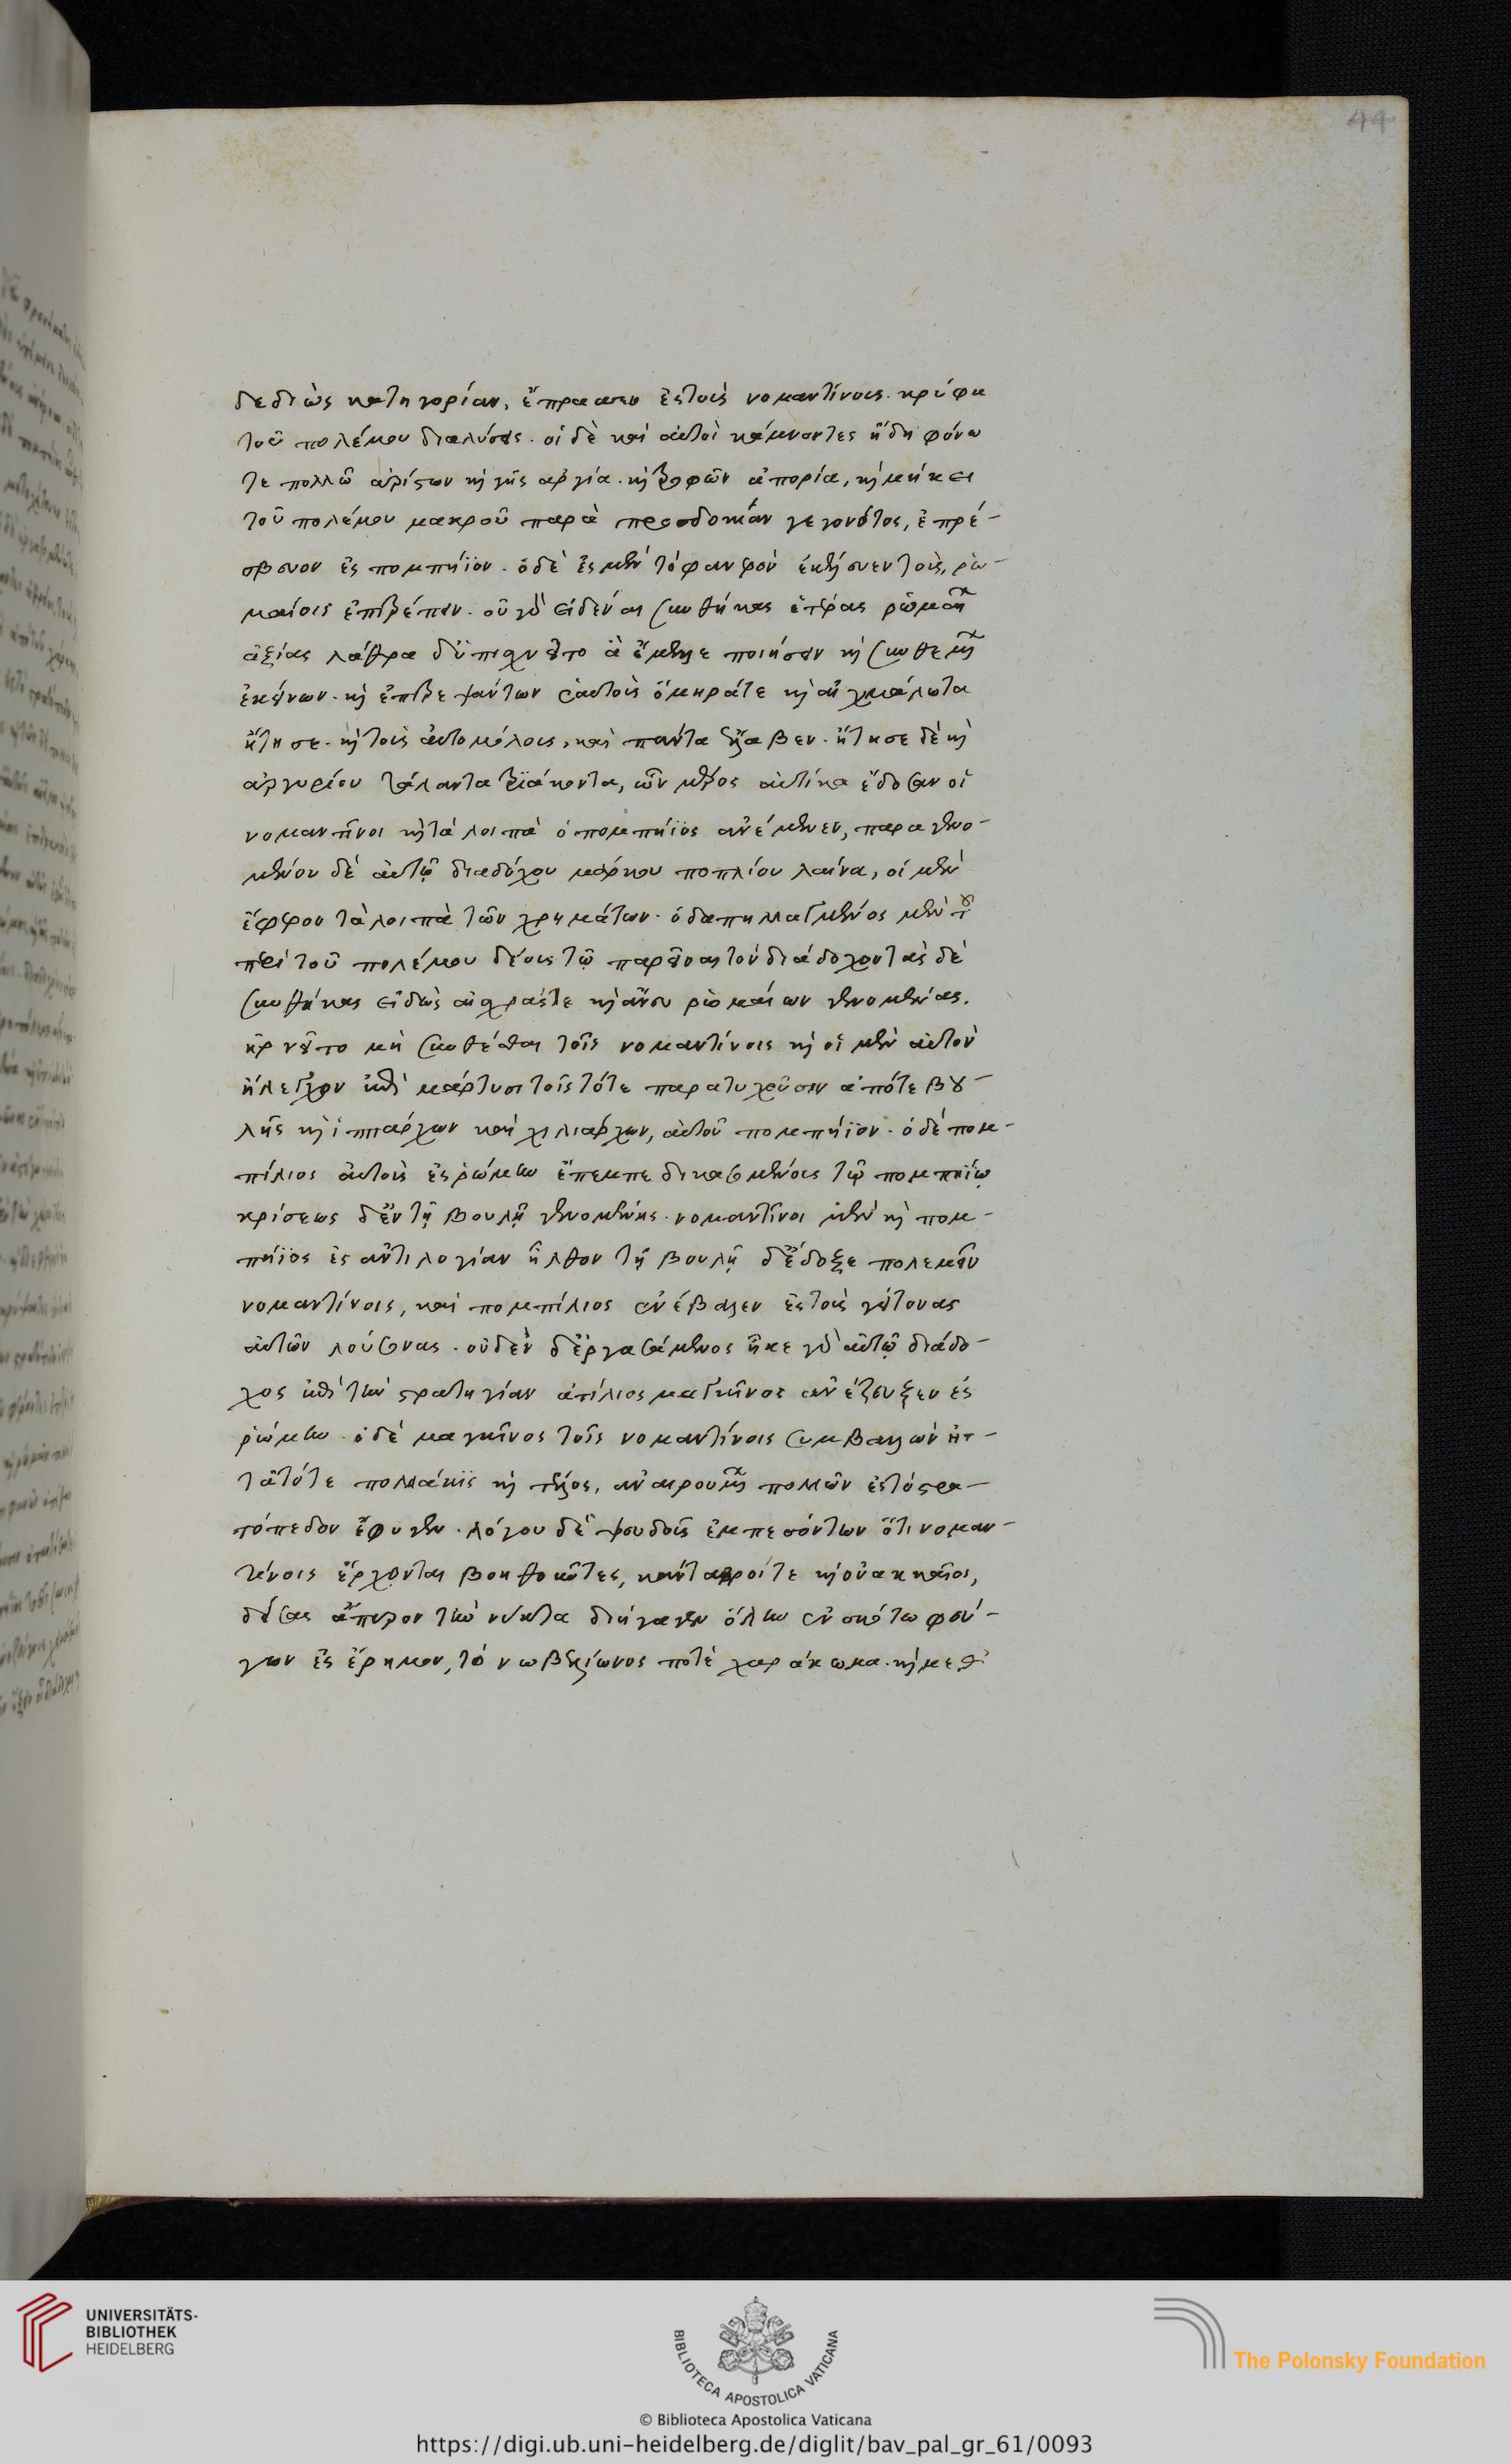 44
δεδιὼς κατηγορίαν, ἔπρασσεν ἐς τοὺς νομαντίνους κρύφα
τοῦ πολέμου διαλύσεις. οἱ δὲ καὶ αὐτοὶ κάμνοντες ἤδη φόνω
τε πολλῶ ἀρίστων καὶ γῆς ἀργία. καὶ τροφῶν ἀπορία, καὶ μήκει
τοῦ πολέμου μακροῦ παρὰ προσδοκίαν γεγονότος, ἐπρέ-
σβευον ἐς πομπήϊον. ὁ δὲ ἐς μὲν τὸ φανερὸν ἐκέλευεν τοῖς, ῥω-
μαίοις ἐπιτρέπειν. οὐ γὰρ εἰδέναι συνθήκας ἑτέρας ῥωμαίων
ἀξίας λάθρα δ' ὑπισχνεῖτο ἃ ἔμελλε ποιήσειν καὶ συνθεμένων
ἐκείνων. καὶ ἐπιτρεψάντων ἑαυτοὺς ὅμηρά τε καὶ αἰχμάλωτα
ἤτησε. καὶ τοὺς αὐτομόλους, καὶ πάντα ἔλαβεν. ἤτησε δὲ καὶ
ἀργυρίου τάλαντα τριάκοντα, ὧν μέρος αὐτίκα ἔδοσαν οἱ
νομαντῖνοι καὶ τὰ λοιπὰ ὁ πομπήϊος ἀνέμενεν, παραγενο-
μένου δὲ αὐτῷ διαδόχου μάρκου ποπλίου λαίνα, οἱ μὲν
ἔφερον τὰ λοιπὰ τῶν χρημάτων. ὁ δ' ἀπηλλαγμένος μὲν τοῦ
περὶ τοῦ πολέμου δέους τῷ παρεῖναι τὸν διάδοχον τὰς δὲ
συνθήκας εἰδὼς αἰσχράς τε καὶ ἄνευ ῥωμαίων γενομένας.
ἠρνεῖτο μὴ συνθέσθαι τοῖς νομαντίνοις καὶ οἱ μὲν αὐτὸν
ἤλεγχον ἐπὶ μάρτυσι τοῖς τότε παρατυχοῦσιν ἀπό τε βου-
λῆς καὶ ἱππάρχων καὶ χιλιάρχων, αὐτοῦ πομπήϊον. ὁ δὲ πομ-
πίλιος αὐτοὺς ἐς ῥώμην ἔπεμπε δικασομένους τῷ πομπηΐῳ
κρίσεως δ' ἐν τῇ βουλῇ γενομένης. νομαντῖνοι μὲν καὶ πομ-
πήϊος ἐς ἀντιλογίαν ἦλθον τῇ βουλῇ δ' ἔδοξε πολεμεῖν
νομαντίνοις, καὶ πομπίλιος ἐνέβαλεν ἐς τοὺς γείτονας
αὐτῶν λούσονας. οὐδὲν δ' ἐργασάμενος ἧκε γὰρ αὐτῷ διάδο-
χος ἐπὶ τὴν στρατηγίαν ὁστίλιος μαγκῖνος ἀνέζευξεν ἐς
ῥώμην. ὁ δὲ μαγκῖνος τοῖς νομαντίνοις συμβαλὼν ἡτ-
τᾶτό τε πολλάκις καὶ τέλος, ἀναιρουμένων πολλῶν ἐς τὸ στρα-
τόπεδον ἔφυγεν. λόγου δὲ ψευδοῦς ἐμπεσόντων ὅτι νομαν-
τίνοις ἔρχονται βοηθοῦντες, κάνταβροί τε καὶ οὐακκαῖοι,
δείσας ἄπυρον τὴν νύκτα διήγαγεν ὅλην ἐν σκότω φεύ-
γων ἐς ἔρημον, τὸ νωβελίωνος ποτὲ χαράκωμα. καὶ μεθ'
UNIVERSITÄTS-
BIBLIOTHEK
HEIDELBERG
BIBLIOTECA APOSTOLICA VATICANA
The Polonsky Foundation
© Biblioteca Apostolica Vaticana
https://digi.ub.uni-heidelberg.de/diglit/bav_pal_gr_61/0093